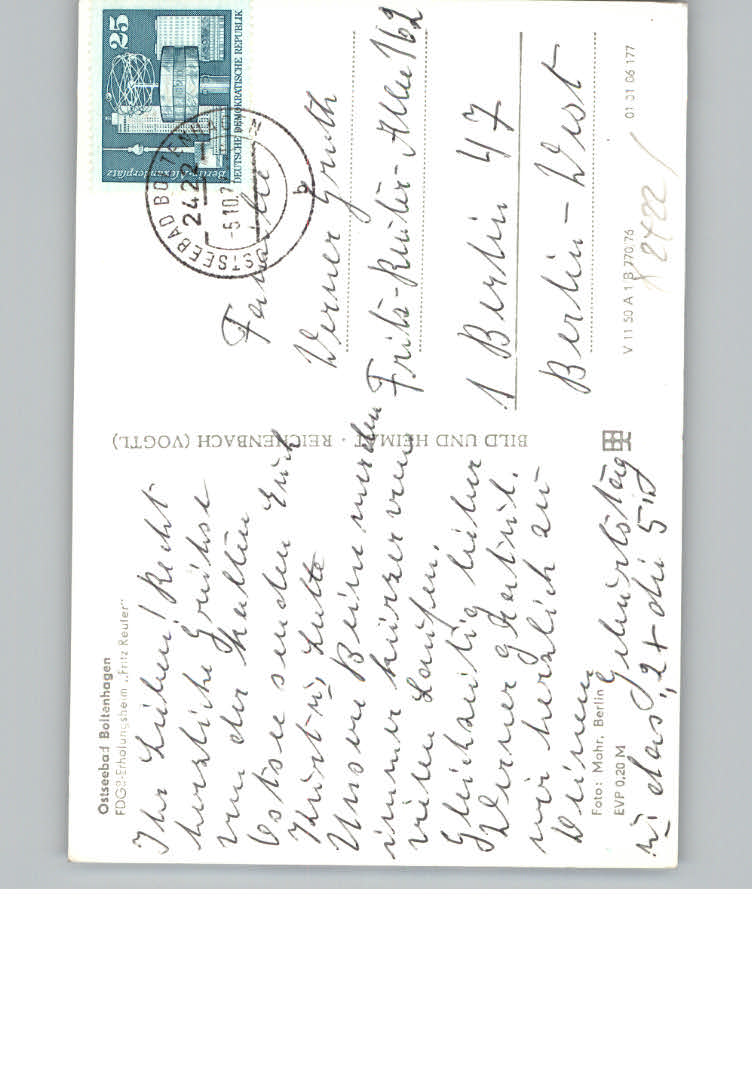 Ostseebad Boltenhagen
FDGB-Erholungsheim „Fritz Reuter"
Ihr Lieben! Recht
herzliche Grüsse
von der kalten
Ostsee senden Euch
Kurt u. Lotte
Unsere Beine werden
immer kürzer vom
vielen Laufen.
Gleichzeitig lieber
Werner gratul.
wir herzlich zu
Deinem
Geburtstag
u. das
Foto: Mohr, Berlin
EVP 0,20 M
BILD UND HEIMAT · REICHENBACH (VOGTL)
25
DEUTSCHE DEMOKRATISCHE REPUBLIK
Berlin-Alexanderplatz
OSTSEEBAD BOLTENHAGEN
2422
-6.10.7
b
Familie
Werner
Fritz-Reuter-Allee 162
1 Berlin 47
Berlin-West
V 11 50 A 1 B 770/76
01 01 06 177